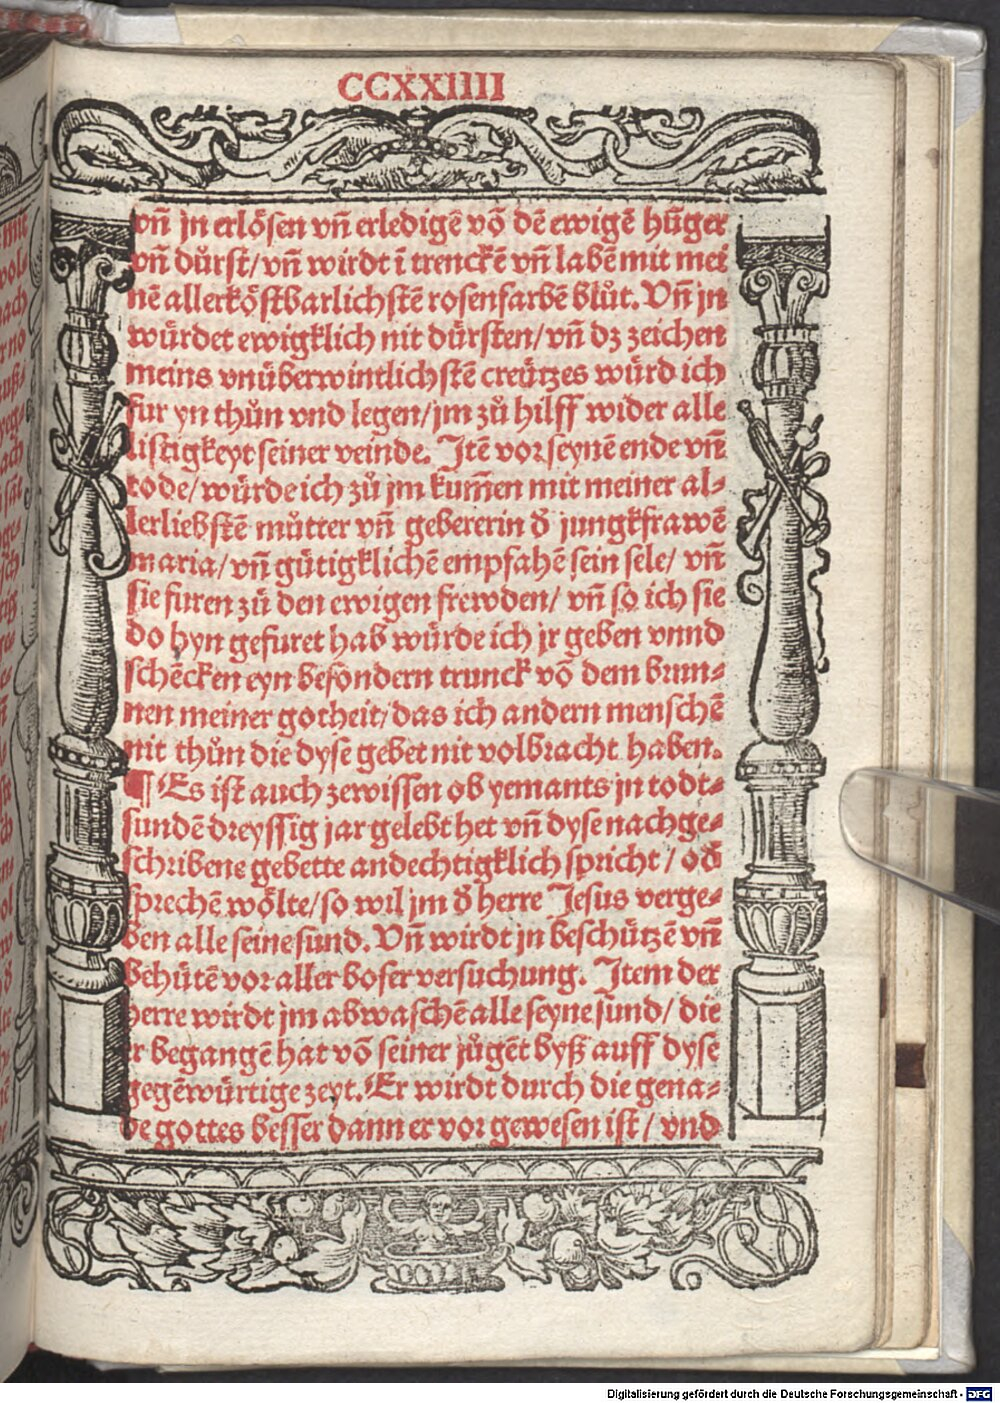 CCXXIIII
vñ jn erlösen vñ erledigē vō dē ewigē hūger
vñ dürst/ vñ wirdt ī trenckē vñ labē mit mei
nē allerköstbarlichstē rosenfarbē blůt. Vñ jn
würdet ewigklich nit dürsten/ vñ dz zeichen
meins vnüberwintlichstē creützes würd ich
fur yn thůn vnd legen/ jm zů hilff wider alle
listigkeyt seiner veinde. Itē vor seynē ende vñ
tode/ würde ich zů jm kum̄en mit meiner al⸗
lerliebstē můtter vñ gebererin ď jungkfrawē
maria/ vñ gütigklichē empfahē sein sele/ vñ
sie furen zů den ewigen frewden/ vñ so ich sie
do hyn gefuret hab würde ich jr geben vnnd
schēcken eyn besondern trunck vō dem brun⸗
nen meiner gotheit/ das ich andern menschē
nit thůn die dyse gebet nit volbracht haben.
¶ Es ist auch zewissen ob yemants jn todt⸗
sundē dreyssig jar gelebt het vñ dyse nachge⸗
schribene gebette andechtigklich spricht/ oď
sprechē wölte/ so wil jm ď herre Jesus verge⸗
ben alle seine sund. Vñ wirdt jn beschützē vñ
behütē vor aller boser versuchung. Item der
herre wirdt jm abwaschē alle seyne sund/ die
er begangē hat vō seiner jůgēt byß auff dyse
gegēwürtige zeyt. Er wirdt durch die gena⸗
de gottes besser dann er vor gewesen ist/ vnd
Digitalisierung gefördert durch die Deutsche Forschungsgemeinschaft - DFG